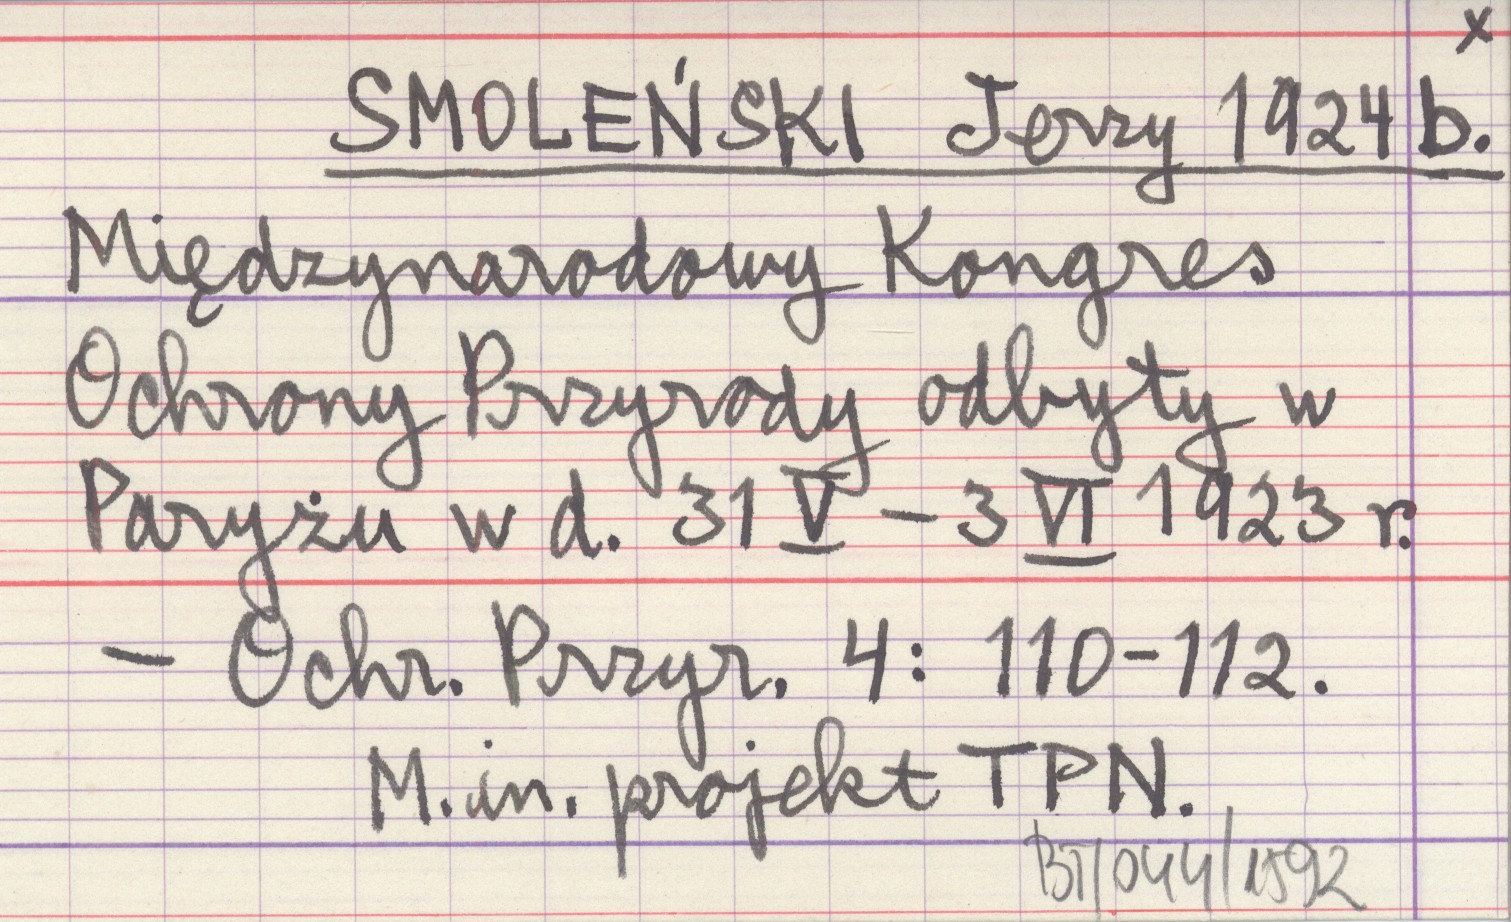 x
SMOLEŃSKI Jerzy 1924 b.
Międzynarodowy Kongres
Ochrony Przyrody odbyty w
Paryżu w d. 31 V – 3 VI 1923 r.
– Ochr. Przyr. 4: 110-112.
M.in. projekt TPN.
BT/044/1592